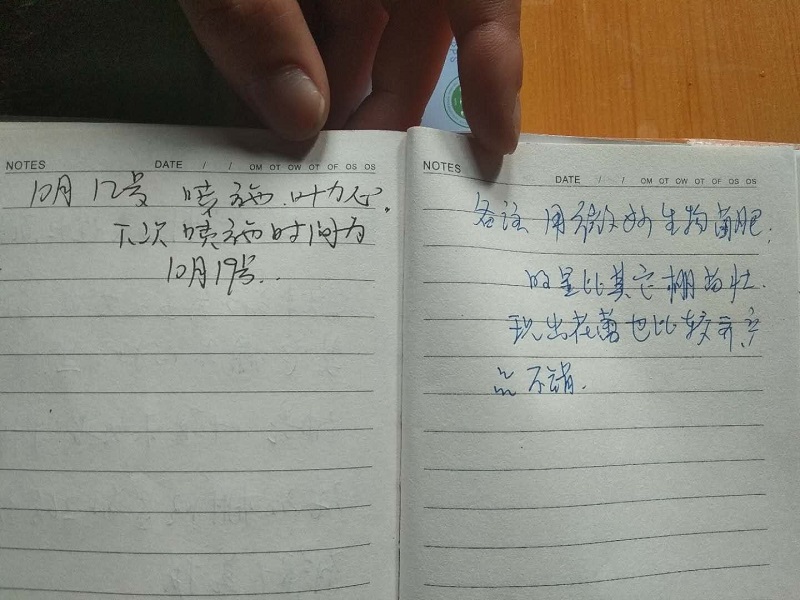 NOTES DATE / / OM OT OW OT OF OS OS
10月12号 喷施.叶力心.
下次喷施时间为
10月19号..
NOTES DATE / / OM OT OW OT OF OS OS
备注 用微妙生物菌肥.
明显比其它棚苗壮.
现出花蕾也比较齐产
品不错.